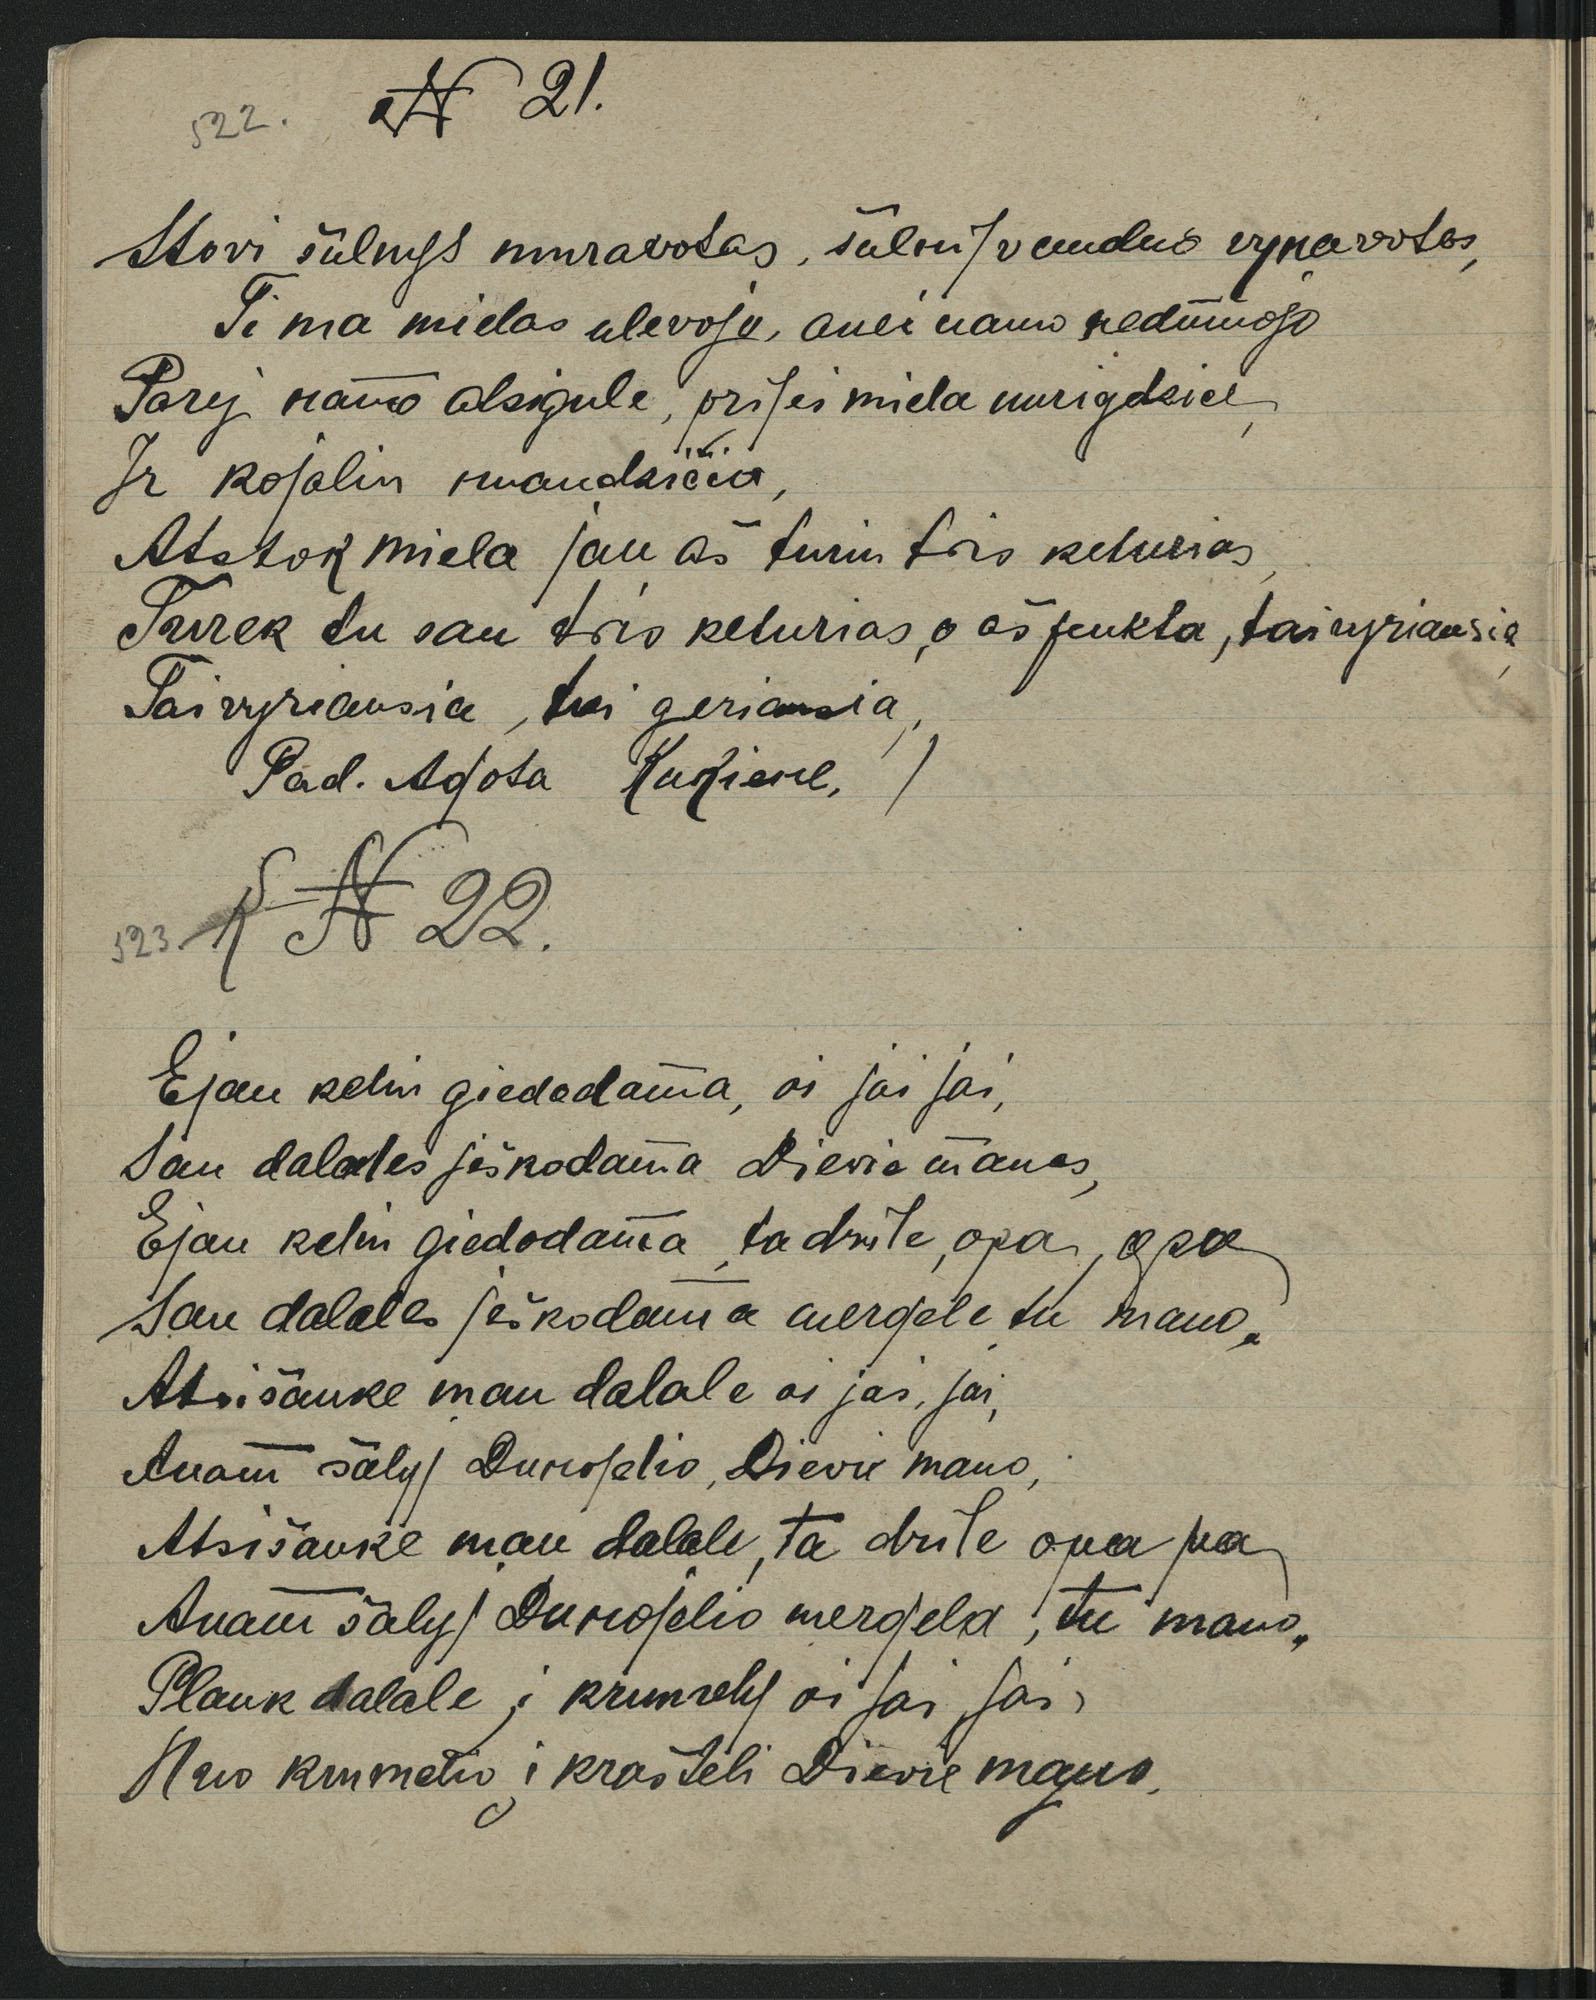 522. N 21.
Stovi šulnys muravotas, šulnij vanduo vynavotas,
Ti ma mielas ulevoja, anei namo nedūmoja
Parėj namo atsigulė, prisei miela
Ir kojalin
Atstok miela jau aš turiu tris keturias,
Turėk tu sau tris keturias, o aš penkta, tai vyriausia,
Tai vyriausia, tai geriausia,
Pad. Agota Kukienė.
523. N 22.
Ejau keliu giedodama, oi jai jai,
Sau dalales ješkodama Dievie manas,
Ejau keliu giedodama, ta drile, opa, opa
Sau dalales ješkodama mergele tu mano.
Atsišaukė man dalale oi jai, jai,
Anam šalyj Dunojelio, Dievie mano,
Atsišaukė man dalale, ta drile opa pa
Anam šalyj Dunojelio mergela, tu mano.
Plauk dalale į krumely oi jai, jai,
Nuo krumelio į krašteli Dievie mano.